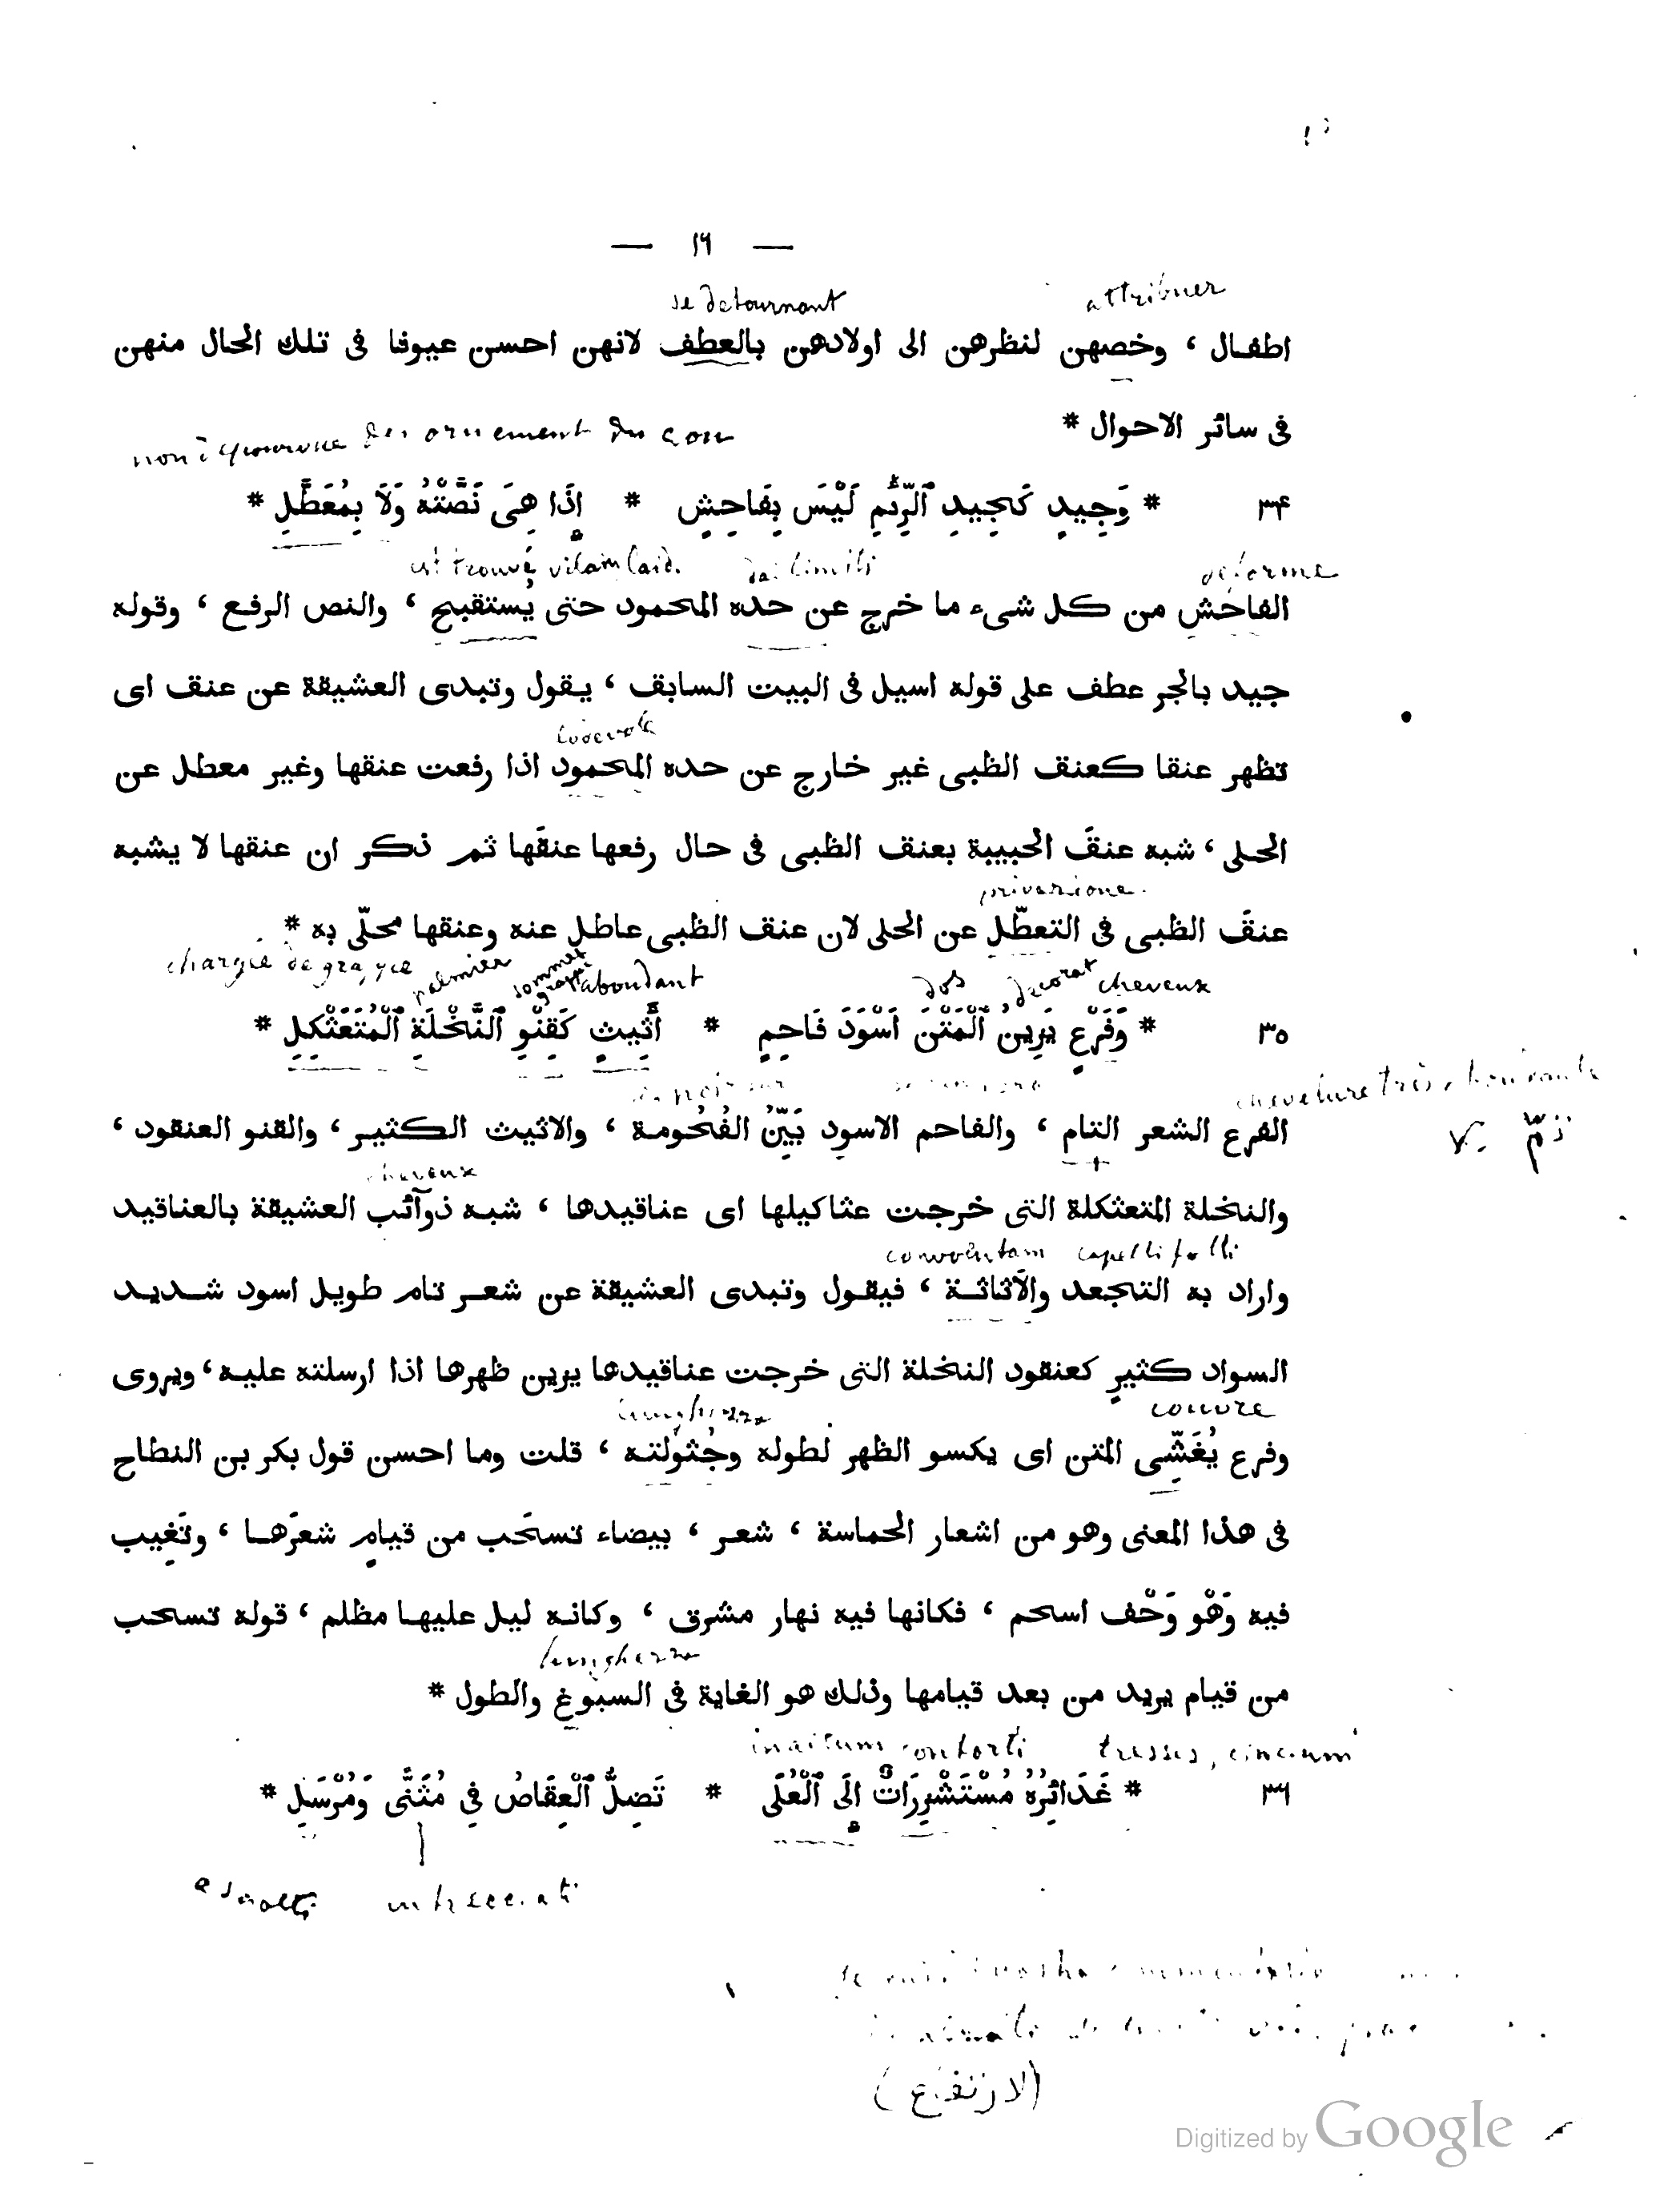 — ١٦ —
se detournant attribuer
اطفال ، وخصهن لنظرهن الى اولادهن بالعطف لانهن احسن عيونا فى تلك الحال منهن
فى سائر الاحوال *
ornement du cou
٣۴ * وَجِيدٍ كَجِيدِ ٱلرِّئْمِ لَيْسَ بِفَاحِشٍ * إِذَا هِىَ نَصَّتْهُ وَلَا بِمُعَطَّلِ *
est trouvé vilain laid. deforme
الفاحش من كل شىء ما خرج عن حده المحمود حتى يُستقبح ، والنص الرفع ، وقوله
جيد بالجر عطف على قوله اسيل فى البيت السابق ، يقول وتبدى العشيقة عن عنق اى
تظهر عنقا كعنق الظبى غير خارج عن حده المحمود اذا رفعت عنقها وغير معطل عن
الحلى ، شبه عنقَ الحبيبة بعنق الظبى فى حال رفعها عنقَها ثم ذكر ان عنقها لا يشبه
privazione.
عنقَ الظبى فى التعطّل عن الحلى لان عنق الظبى عاطل عنه وعنقها محلّى به *
chargée de grappe palmier sommet grappe abondant dos decorat cheveux
٣٥ * وَفَرْعٍ يَزِينُ ٱلْمَتْنَ اَسْوَدَ فَاحِمٍ * أَثِيثٍ كَقِنْوِ ٱلنَّخْلَةِ ٱلْمُتَعَثْكِلِ *
chevelure très
الفرع الشعر التام ، والفاحم الاسود بَيِّنُ الفُحُومة ، والاثيث الكثير ، والقنو العنقود ،
cheveux
والنخلة المتعثكلة التى خرجت عثاكيلها اى عناقيدها ، شبه ذوآئب العشيقة بالعناقيد
capelli folti
واراد به التجعد والآثاثة ، فيقول وتبدى العشيقة عن شعر تام طويل اسود شديد
السواد كثيرٍ كعنقود النخلة التى خرجت عناقيدها يزين ظهرها اذا ارسلته عليه ، ويروى
lunghezza couvre
وفرع يُغَشِّى المتن اى يكسو الظهر لطوله وجُثولته ، قلت وما احسن قول بكر بن النطاح
فى هذا المعنى وهو من اشعار الحماسة ، شعر ، بيضاء تسحَب من قيامٍ شعرَها ، وتَغِيب
فيه وَهْو وَحْف اسحم ، فكانها فيه نهار مشرق ، وكانه ليل عليها مظلم ، قوله تسحب
lunghezza
من قيام يريد من بعد قيامها وذلك هو الغاية فى السبوغ والطول *
contorti tresses,
٣٦ * غَدَائِرُهُ مُسْتَشْزِرَاتٌ إِلَى ٱلْعُلَى * تَضِلُّ ٱلْعِقَاصُ فِى مُثَنًّى وَمُرْسَلِ *
intrecciati
Digitized by Google